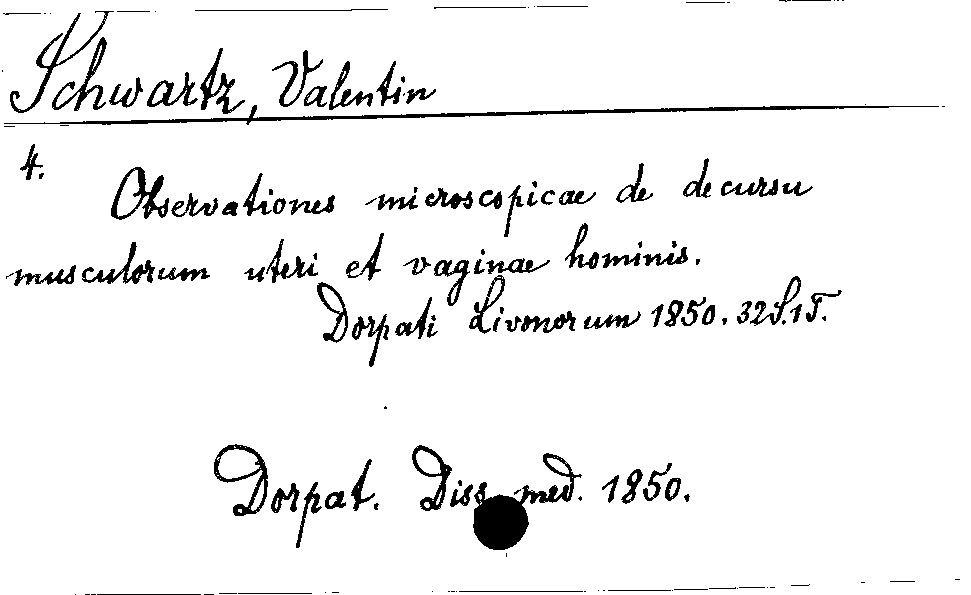 Schwartz, Valentin
4.
Observationes microscopicae de decursu
musculorum uteri et vaginae hominis.
Dorpati Livonorum 1850. 32S.1T.
Dorpat. Diss. med. 1850.